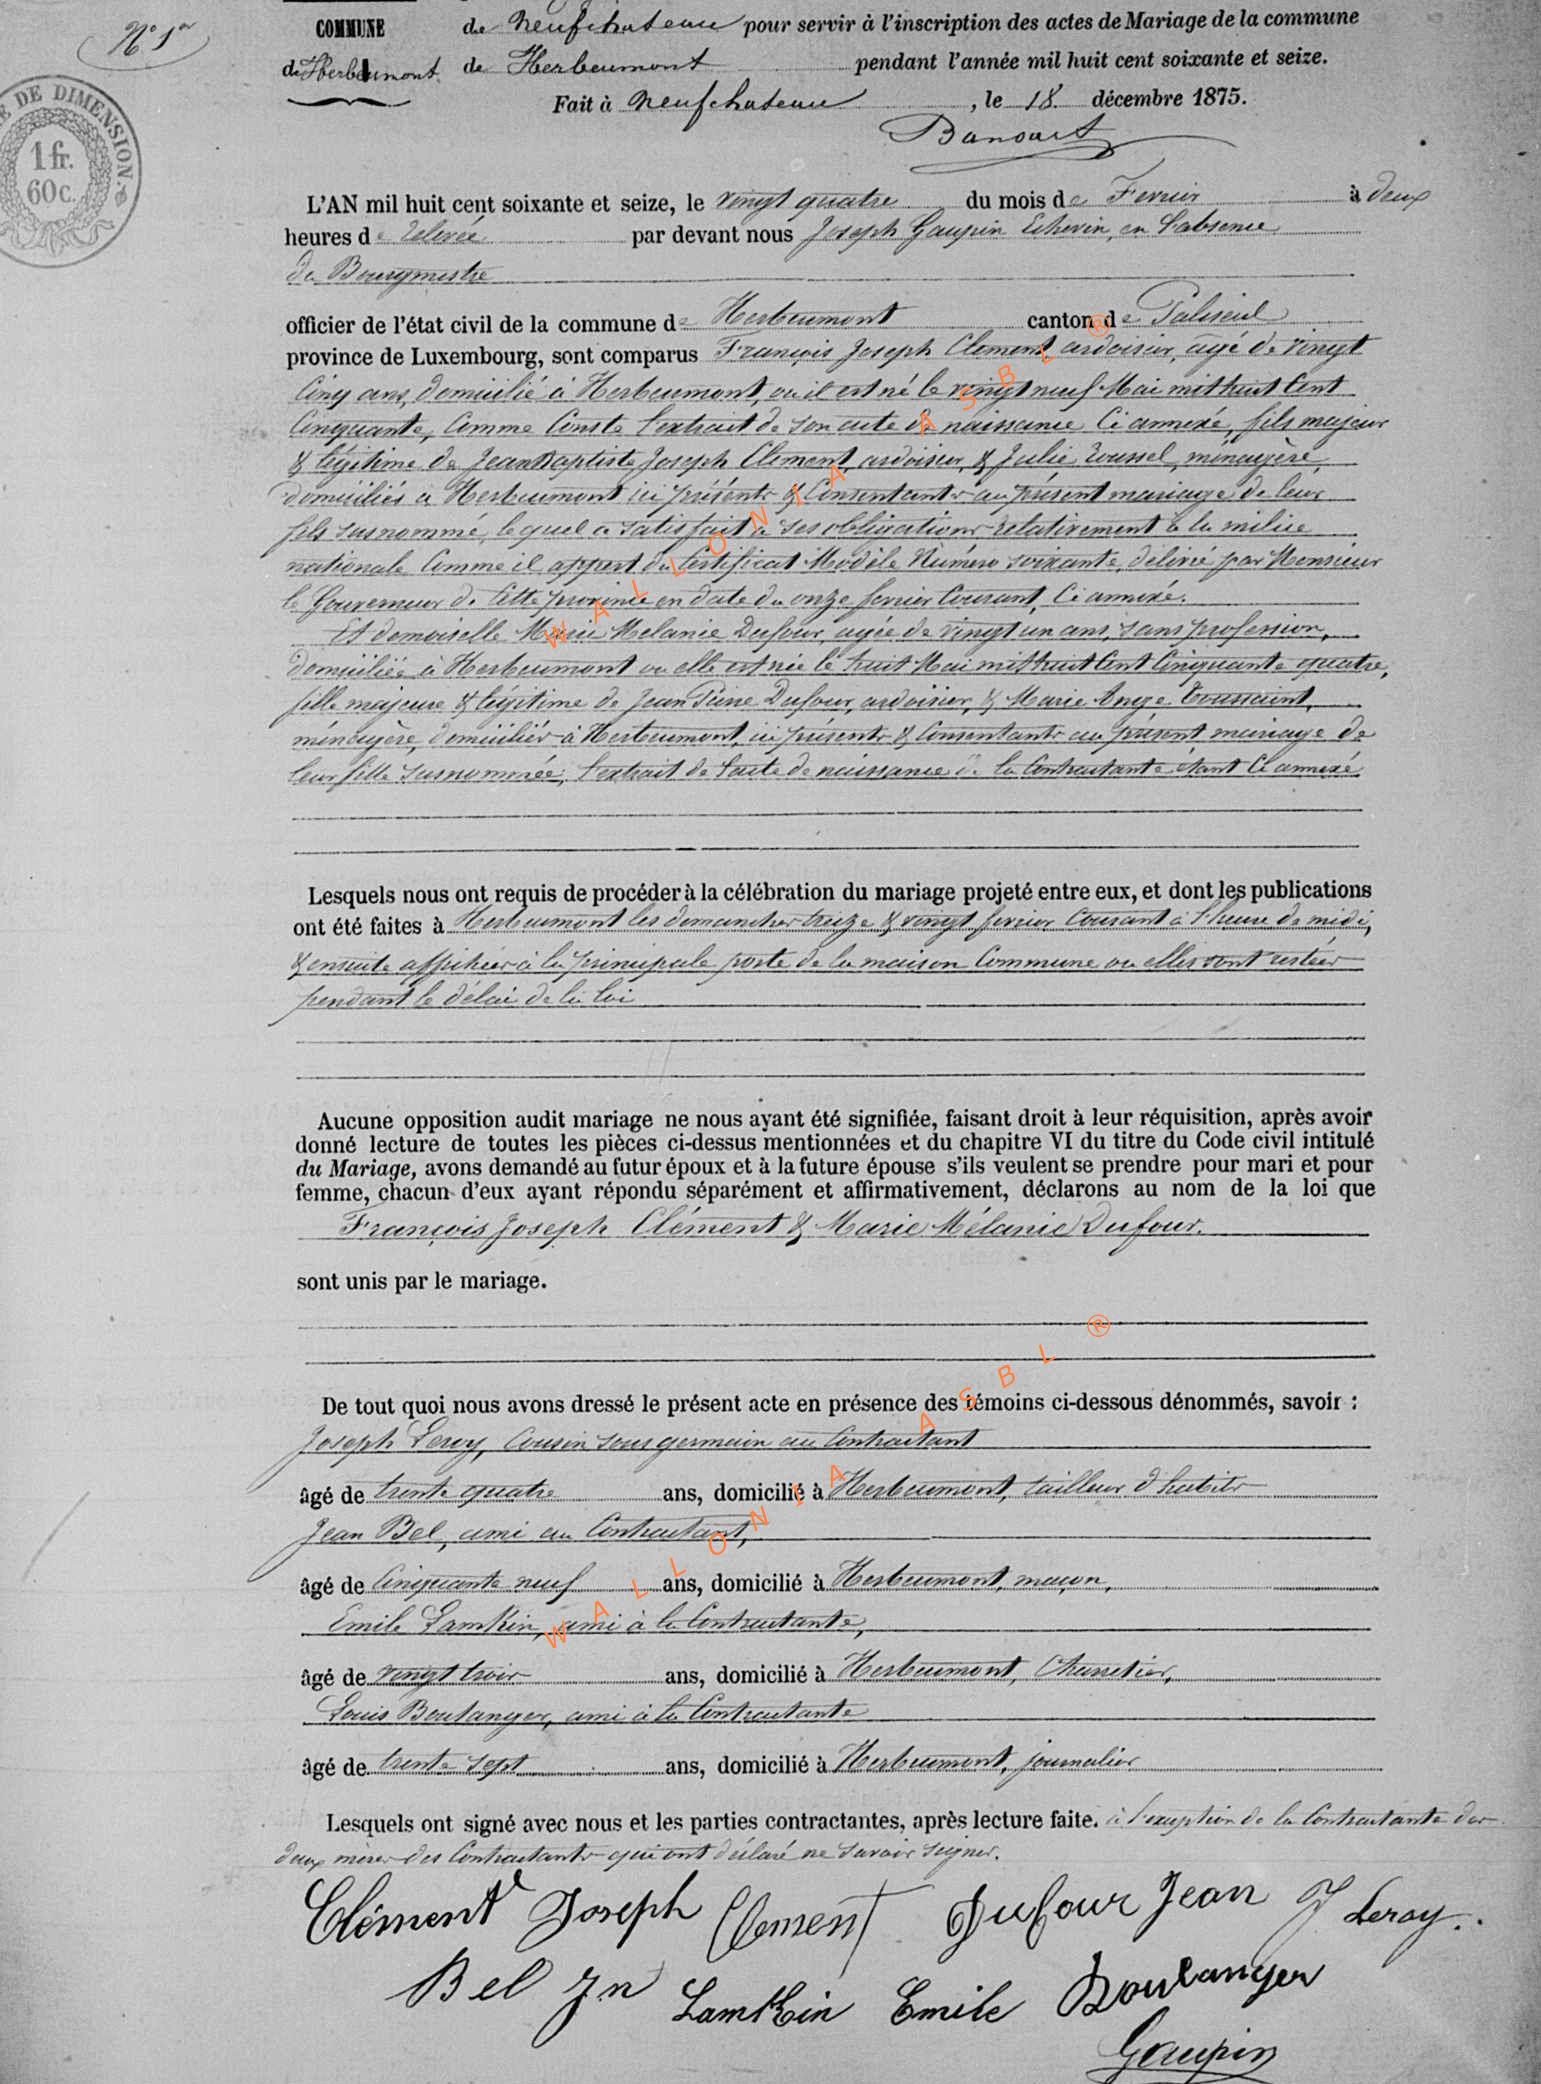 N° 1er
COMMUNE
de Herbeumont
de Neufchateau pour servir à l'inscription des actes de Mariage de la commune
de Herbeumont pendant l'année mil huit cent soixante et seize.
Fait à Neufchateau, le 18 décembre 1875.
DE DIMENSION.
1 fr.
60 c.
L'AN mil huit cent soixante et seize, le vingt quatre du mois de Fevrier à deux
heures de relevée par devant nous Joseph Gaupin Echevin, en l'absence
du Bourgmestre
officier de l'état civil de la commune de Herbeumont canton de Paliseul
province de Luxembourg, sont comparus François Joseph Clement, ardoisier, agé de vingt
Cinq ans, domicilié à Herbeumont, où il est né le vingt neuf Mai mil huit Cent
Cinquante, Comme Conste l'extrait de son acte de naissance Ci annexé, fils majeur
& légitime de Jean Baptiste Joseph Clement, ardoisier, & Julie Roussel, ménagère,
domiciliés à Herbeumont, ici présents & Consentants au présent mariage de leur
fils susnommé, lequel a satisfait à ses obligations relativement à la milice
nationale Comme il appert du Certificat Modèle Numéro soixante, délivré par Monsieur
le Gouverneur de Cette province en date du onze fevrier Courant, Ci annexé.
Et demoiselle Marie Melanie Dufour, agée de vingt un ans, sans profession,
domiciliée à Herbeumont où elle est née le huit Mai mil huit Cent Cinquante quatre,
fille majeure & légitime de Jean Pierre Dufour, ardoisier, & Marie Ange Toussaint,
ménagère, domiciliés à Herbeumont, ici présents & Consentants au présent mariage de
leur fille susnommée, l'extrait de l'acte de naissance de la Contractante étant Ci annexé
Lesquels nous ont requis de procéder à la célébration du mariage projeté entre eux, et dont les publications
ont été faites à Herbeumont les dimanches treize & vingt fevrier Courant à l'heure de midi,
& ensuite affichées à la principale porte de la maison Commune où elles sont restées
pendant le délai de la loi
Aucune opposition audit mariage ne nous ayant été signifiée, faisant droit à leur réquisition, après avoir
donné lecture de toutes les pièces ci-dessus mentionnées et du chapitre VI du titre du Code civil intitulé
du Mariage, avons demandé au futur époux et à la future épouse s'ils veulent se prendre pour mari et pour
femme, chacun d'eux ayant répondu séparément et affirmativement, déclarons au nom de la loi que
François Joseph Clément & Marie Mélanie Dufour.
sont unis par le mariage.
De tout quoi nous avons dressé le présent acte en présence des témoins ci-dessous dénommés, savoir :
Joseph Leroy, Cousin sous germain au Contractant
âgé de trente quatre ans, domicilié à Herbeumont, tailleur d'habits
Jean Bel, ami au Contractant,
âgé de Cinquante neuf ans, domicilié à Herbeumont, maçon,
Emile Lamkin, ami à la Contractante,
âgé de vingt trois ans, domicilié à Herbeumont, Charretier,
Louis Boulanger, ami à la Contractante
âgé de trente sept ans, domicilié à Herbeumont, journalier
Lesquels ont signé avec nous et les parties contractantes, après lecture faite. à l'exception de la Contractante des
deux mères des Contractants qui ont déclaré ne savoir signer.
Clément Joseph Clement Dufour Jean J Leroy.
Bel Jn Lamkin Emile Boulanger
Gaupin
WALLONIA ASBL ®
WALLONIA ASBL ®